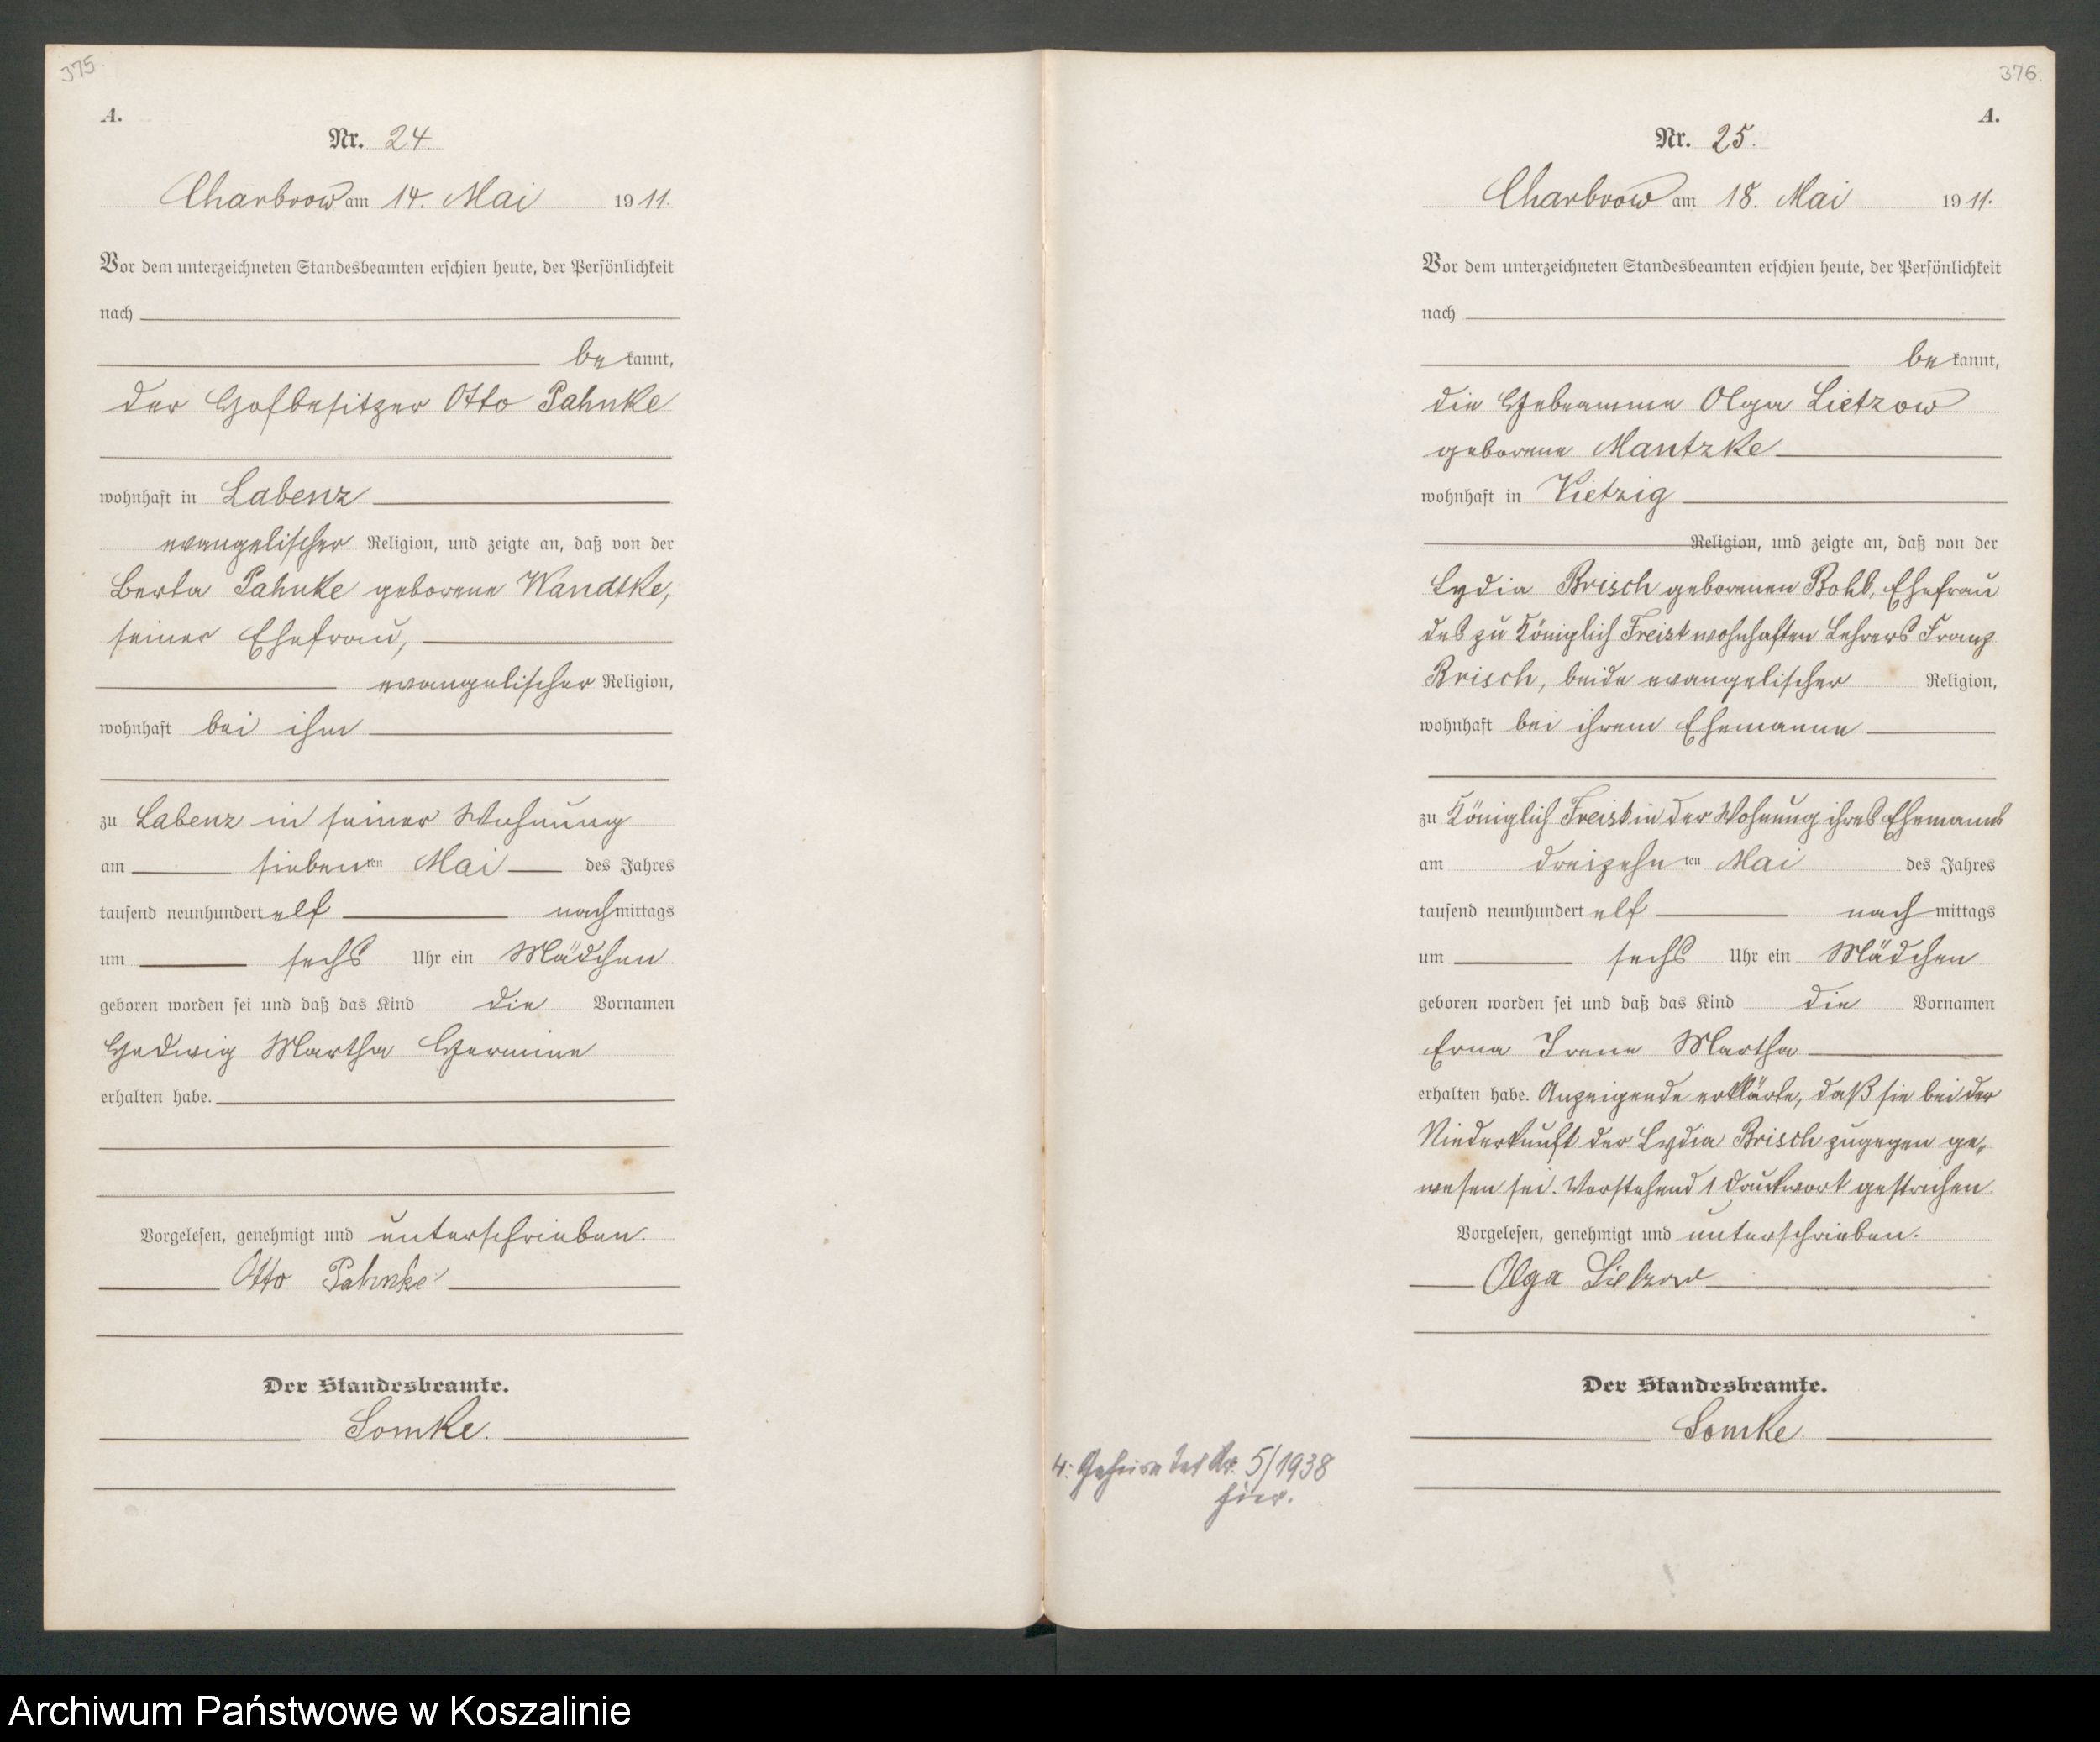 375.
A.
Nr. 24.
Charbrow am 14. Mai 1911.
Vor dem unterzeichneten Standesbeamten erschien heute, der Persönlichkeit
nach
bekannt,
der Hofbesitzer Otto Pahnke
wohnhaft in Labenz
evangelischer Religion, und zeigte an, daß von der
Berta Pahnke geborene Wandtke,
seiner Ehefrau,
evangelischer Religion,
wohnhaft bei ihm
zu Labenz in seiner Wohnung
am siebenten Mai des Jahres
tausend neunhundert elf nachmittags
um sechs Uhr ein Mädchen
geboren worden sei und daß das Kind die Vornamen
Hedwig Martha Hermine
erhalten habe.
Vorgelesen, genehmigt und unterschrieben.
Otto Pahnke
Der Standesbeamte.
Lomke.
376.
A.
Nr. 25.
Charbrow am 18. Mai 1911.
Vor dem unterzeichneten Standesbeamten erschien heute, der Persönlichkeit
nach
bekannt,
die Hebeamme Olga Lietzow
geborene Mantzke
wohnhaft in Vietzig
Religion, und zeigte an, daß von der
Lydia Brisch geborenen Bohl, Ehefrau
des zu Königlich Freist wohnhaften Lehrers Franz
Brisch, beide evangelischer Religion,
wohnhaft bei ihrem Ehemanne
zu Königlich Freist in der Wohnung ihres Ehemanns
am dreizehnten Mai des Jahres
tausend neunhundert elf nachmittags
um sechs Uhr ein Mädchen
geboren worden sei und daß das Kind die Vornamen
Erna Irene Martha
erhalten habe. Anzeigende erklärte, daß sie bei der
Niederkunft der Lydia Brisch zugegen ge-
wesen sei. Vorstehend 1 Druckwort gestrichen.
Vorgelesen, genehmigt und unterschrieben.
Olga Lietzow
Der Standesbeamte.
Lomke
Nr. 5/1938
hier.
Archiwum Państwowe w Koszalinie